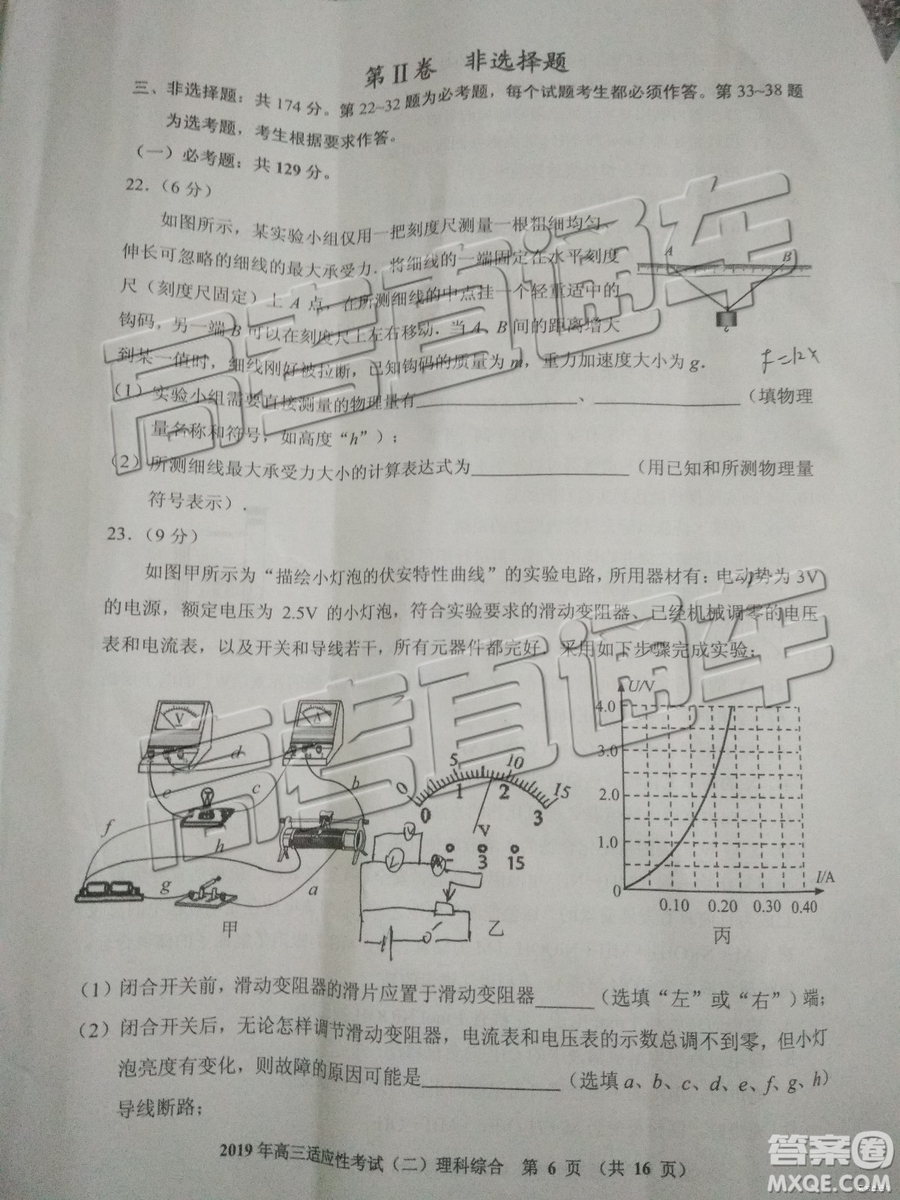 第Ⅱ卷 非选择题
三、非选择题：共 174 分。第 22~32 题为必考题，每个试题考生都必须作答。第 33~38 题
为选考题，考生根据要求作答。
（一）必考题：共 129 分。
22.（6 分）
如图所示，某实验小组仅用一把刻度尺测量一根粗细均匀、
伸长可忽略的细线的最大承受力．将细线的一端固定在水平刻度
尺（刻度尺固定）上 A 点，在所测细线的中点挂一个轻重适中的
钩码，另一端 B 可以在刻度尺上左右移动，当 A、B 间的距离增大
到某一值时，细线刚好被拉断，已知钩码的质量为 m，重力加速度大小为 g．
A
B
C
F=kx
（1）实验小组需要直接测量的物理量有____________、____________（填物理
量名称和符号，如高度“h”）；
（2）所测细线最大承受力大小的计算表达式为____________（用已知和所测物理量
符号表示）．
23.（9 分）
如图甲所示为“描绘小灯泡的伏安特性曲线”的实验电路，所用器材有：电动势为 3V
的电源，额定电压为 2.5V 的小灯泡，符合实验要求的滑动变阻器、已经机械调零的电压
表和电流表，以及开关和导线若干，所有元器件都完好．采用如下步骤完成实验：
V
A
d
e
c
b
f
h
g
a
甲
0 5 10 15
0 1 2 3
V
− 3 15
乙
U/V
4.0
3.0
2.0
1.0
0
0.10 0.20 0.30 0.40
I/A
丙
（1）闭合开关前，滑动变阻器的滑片应置于滑动变阻器______（选填“左”或“右”）端；
（2）闭合开关后，无论怎样调节滑动变阻器，电流表和电压表的示数总调不到零，但小灯
泡亮度有变化，则故障的原因可能是____________（选填 a、b、c、d、e、f、g、h）
导线断路；
2019 年高三适应性考试（二）理科综合 第 6 页 （共 16 页）
高考直通车
高考直通车
答案圈
MXQE.COM